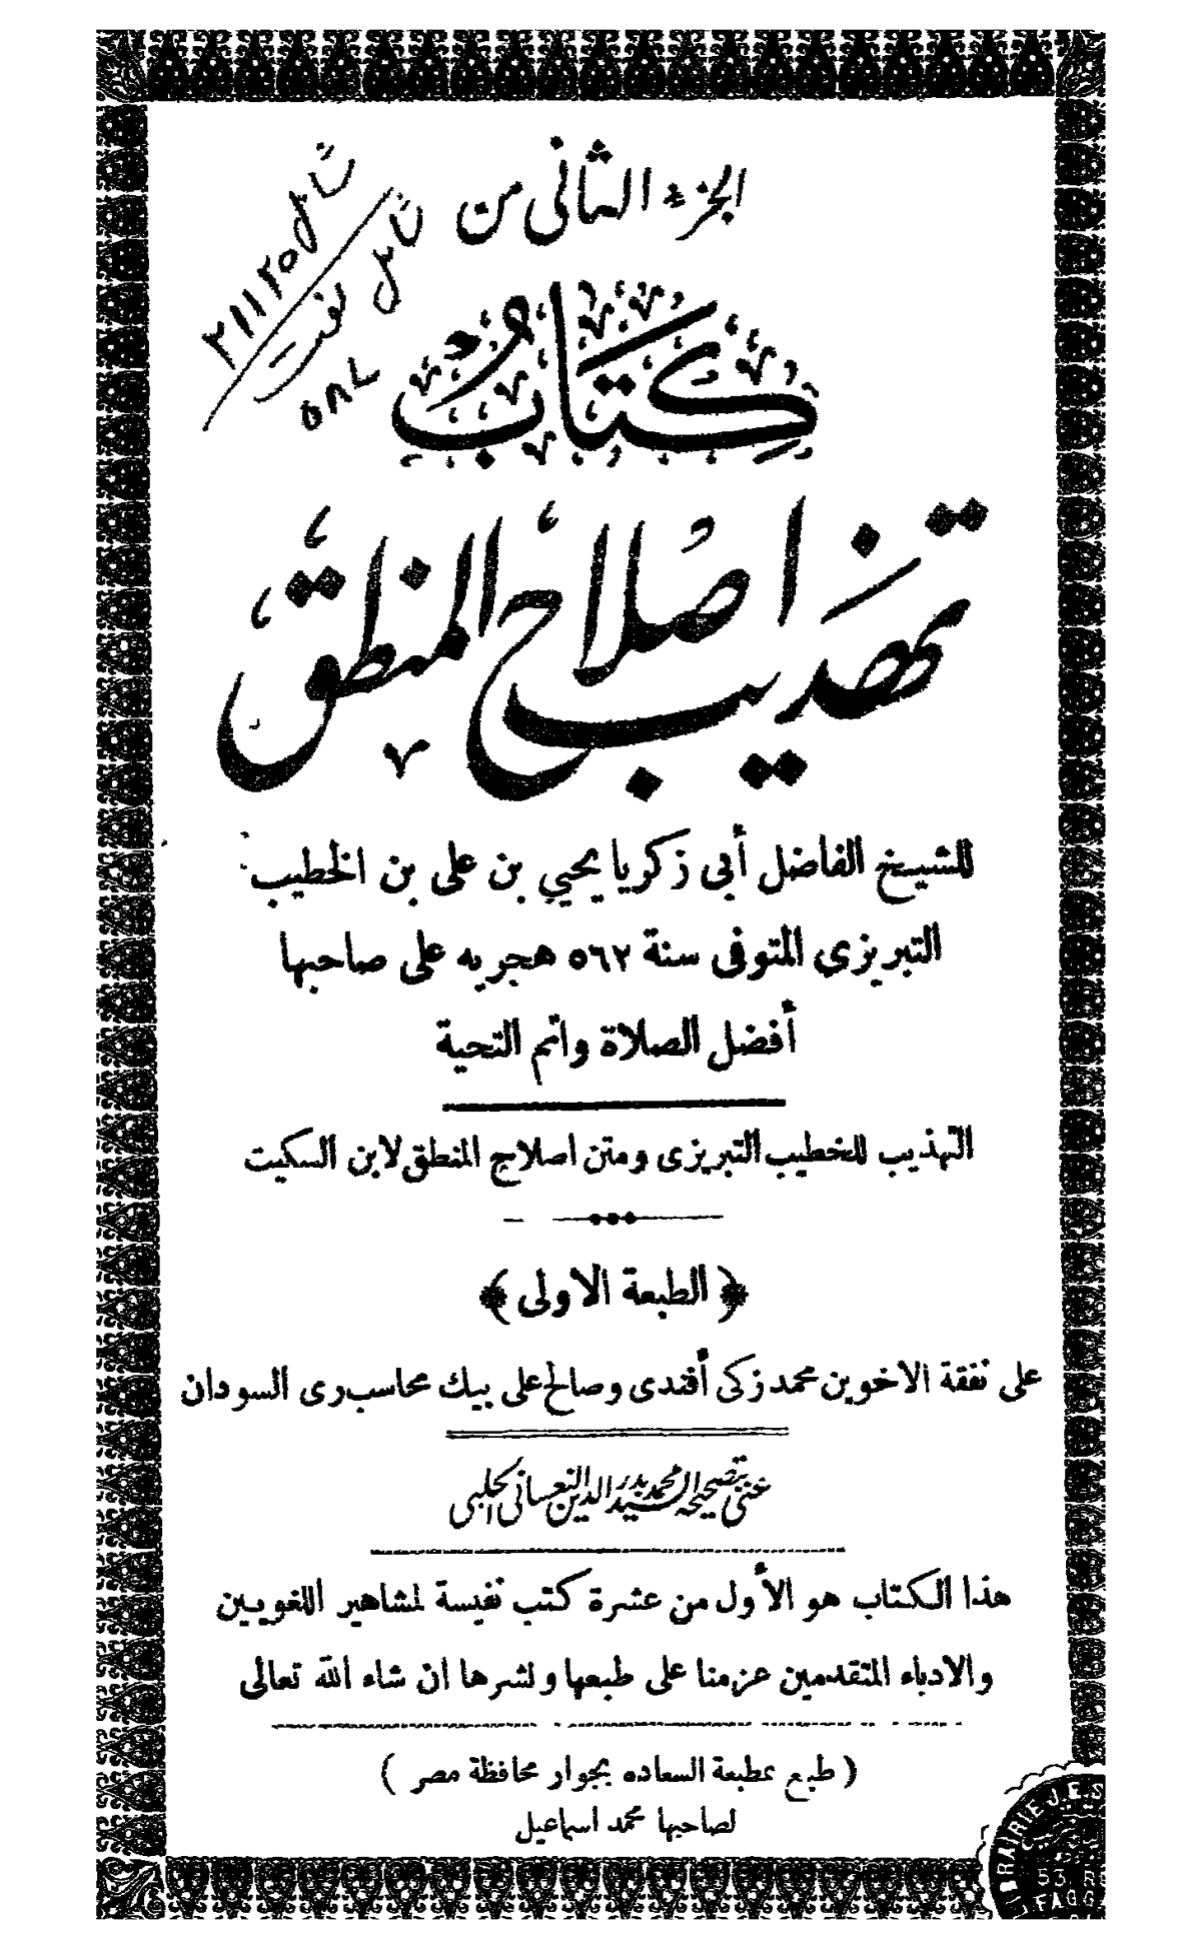 الجزء الثانى من
كتاب
تهذيب اصلاح المنطق
للشيخ الفاضل أبى زكريا يحيي بن على بن الخطيب
التبريزى المتوفى سنة ٥٦٢ هجريه على صاحبها
أفضل الصلاة واتم التحية
التهذيب للخطيب التبريزى ومتن اصلاح المنطق لابن السكيت
﴿ الطبعة الاولى ﴾
على نفقة الاخوين محمد زكى أفندى وصالح على بيك محاسب رى السودان
عنى بتصحيحه السيد محمد بدر الدين النعسانى الحلبى
هذا الكتاب هو الأول من عشرة كتب نفيسة لمشاهير اللغويين
والادباء المتقدمين عزمنا على طبعها ونشرها ان شاء الله تعالى
( طبع بمطبعة السعاده بجوار محافظة مصر )
لصاحبها محمد اسماعيل
٢١١٢٥
٥٨٢